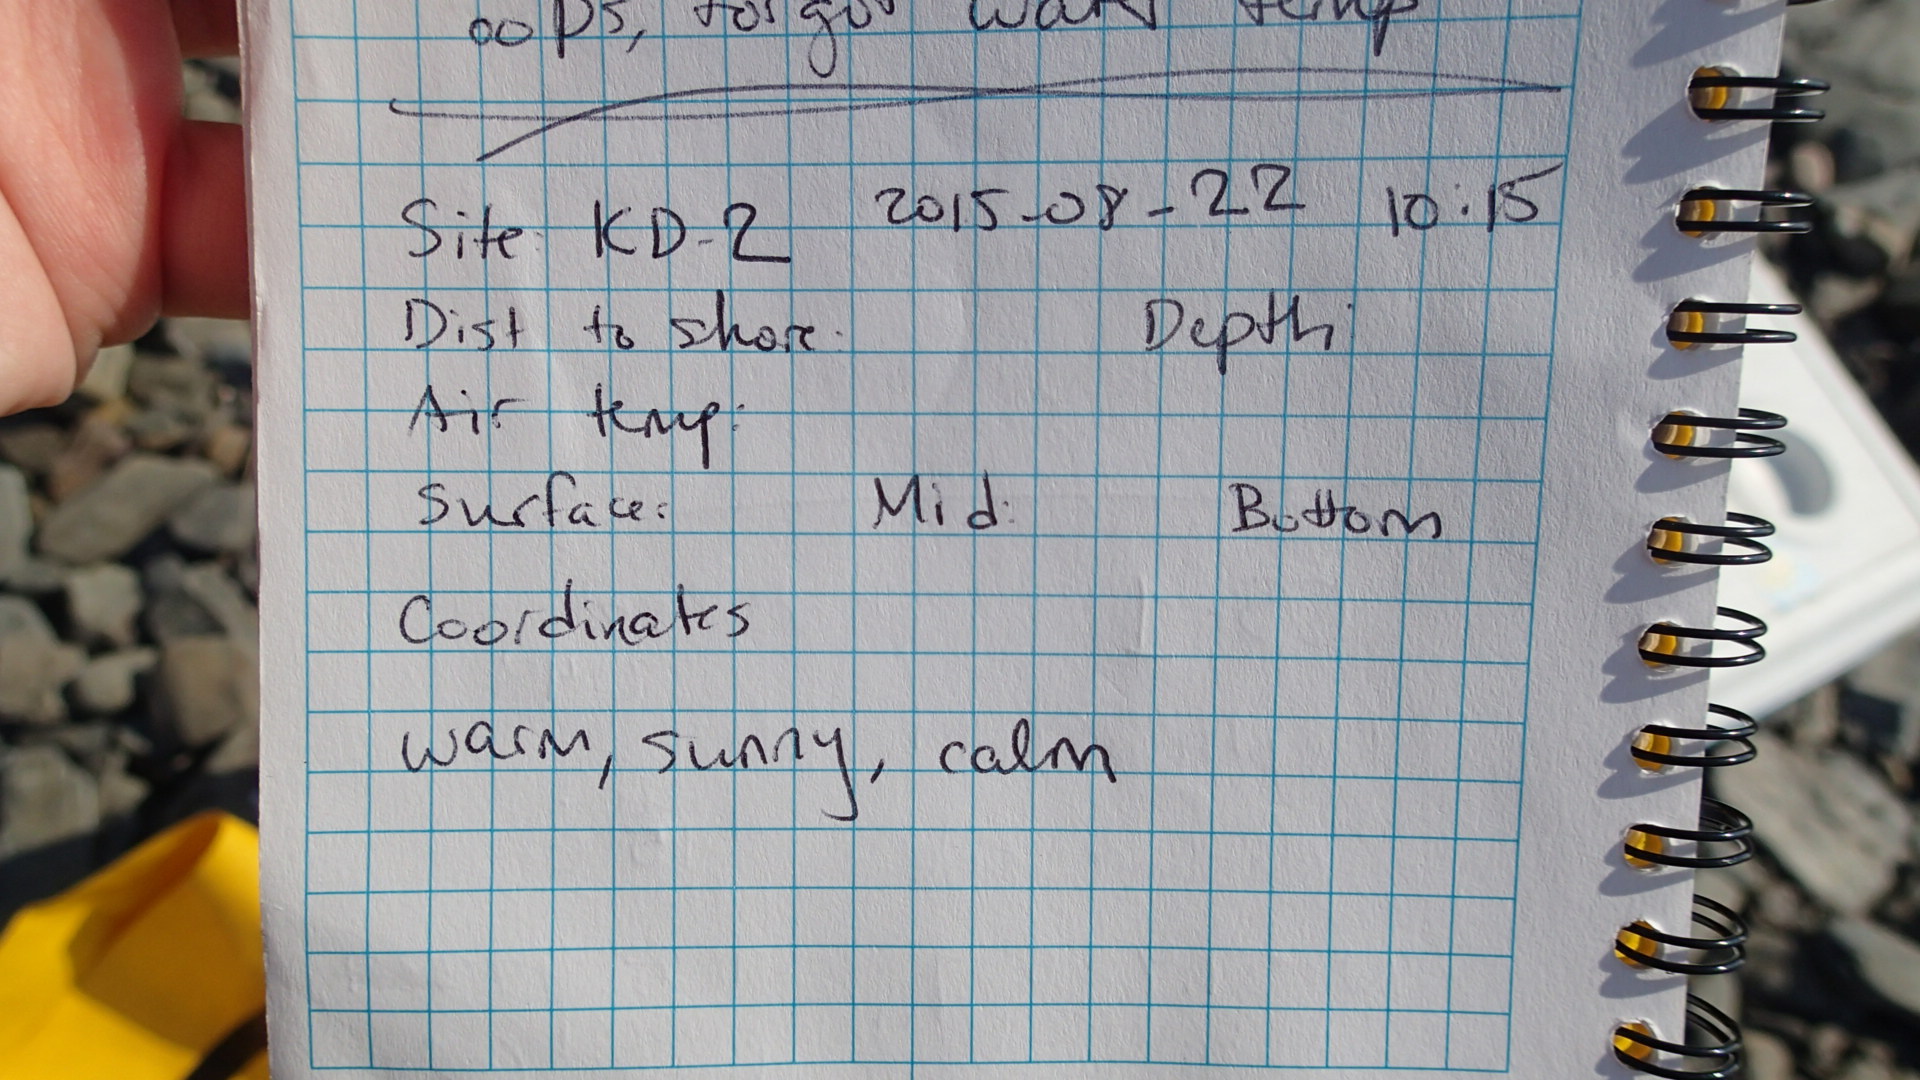 oops, forgot water temp
Site: KD-2 2015-08-22 10:15
Dist to shore: Depth:
Air temp:
Surface: Mid: Bottom
Coordinates
warm, sunny, calm